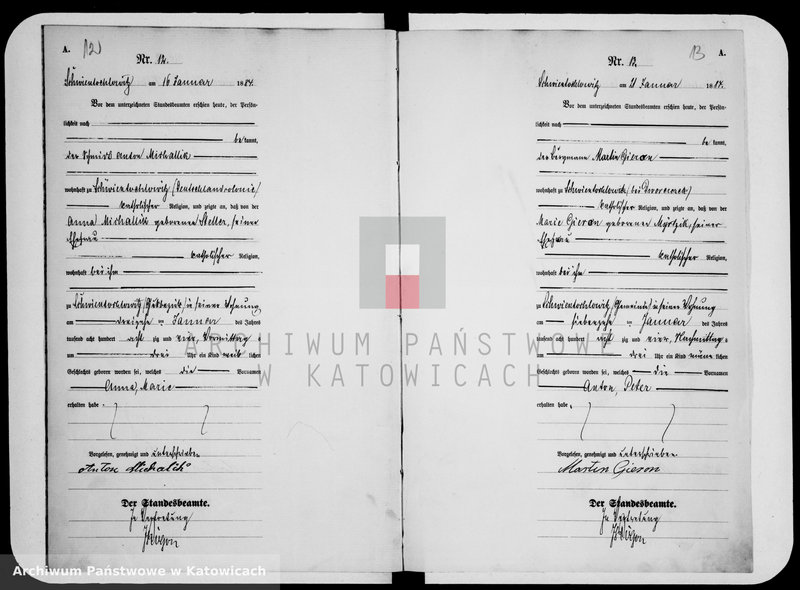 A.
12
Nr. 12.
Schwientochlowitz am 16 Januar 1884.
Vor dem unterzeichneten Standesbeamten erschien heute, der Persön-
lichkeit nach
be kannt,
der Schmied Anton Michallik
wohnhaft zu Schwientochlowitz (Deutschlandcolonie)
katholischer Religion, und zeigte an, daß von der
Anna Michallik geborenen Steller, seiner
Ehefrau
katholischer Religion,
wohnhaft bei ihm
zu Schwientochlowitz (Gutsbezirk) in seiner Wohnung
am dreizehn ten Januar des Jahres
tausend acht hundert acht zig und vier, Vormittag s
um drei Uhr ein Kind weib lichen
Geschlechts geboren worden sei, welches die Vornamen
Anna, Marie
erhalten habe.
Vorgelesen, genehmigt und unterschrieben
Anton Michalik
Der Standesbeamte.
In Vertretung
13
A.
Nr. 13
Schwientochlowitz am 21 Januar 1884.
Vor dem unterzeichneten Standesbeamten erschien heute, der Persön-
lichkeit nach
be kannt,
der Bergmann Martin Gieron
wohnhaft zu Schwientochlowitz (bei
katholischer Religion, und zeigte an, daß von der
Marie Gieron geborenen seiner
Ehefrau
katholischer Religion,
wohnhaft bei ihm
zu Schwientochlowitz (Gemeinde) in seiner Wohnung
am siebenzehn ten Januar des Jahres
tausend acht hundert acht zig und vier, Nachmittag s
um drei Uhr ein Kind männ lichen
Geschlechts geboren worden sei, welches die Vornamen
Anton, Peter
erhalten habe.
Vorgelesen, genehmigt und unterschrieben
Martin Gieron
Der Standesbeamte.
In Vertretung
ARCHIWUM PAŃSTWOWE
W KATOWICACH
Archiwum Państwowe w Katowicach